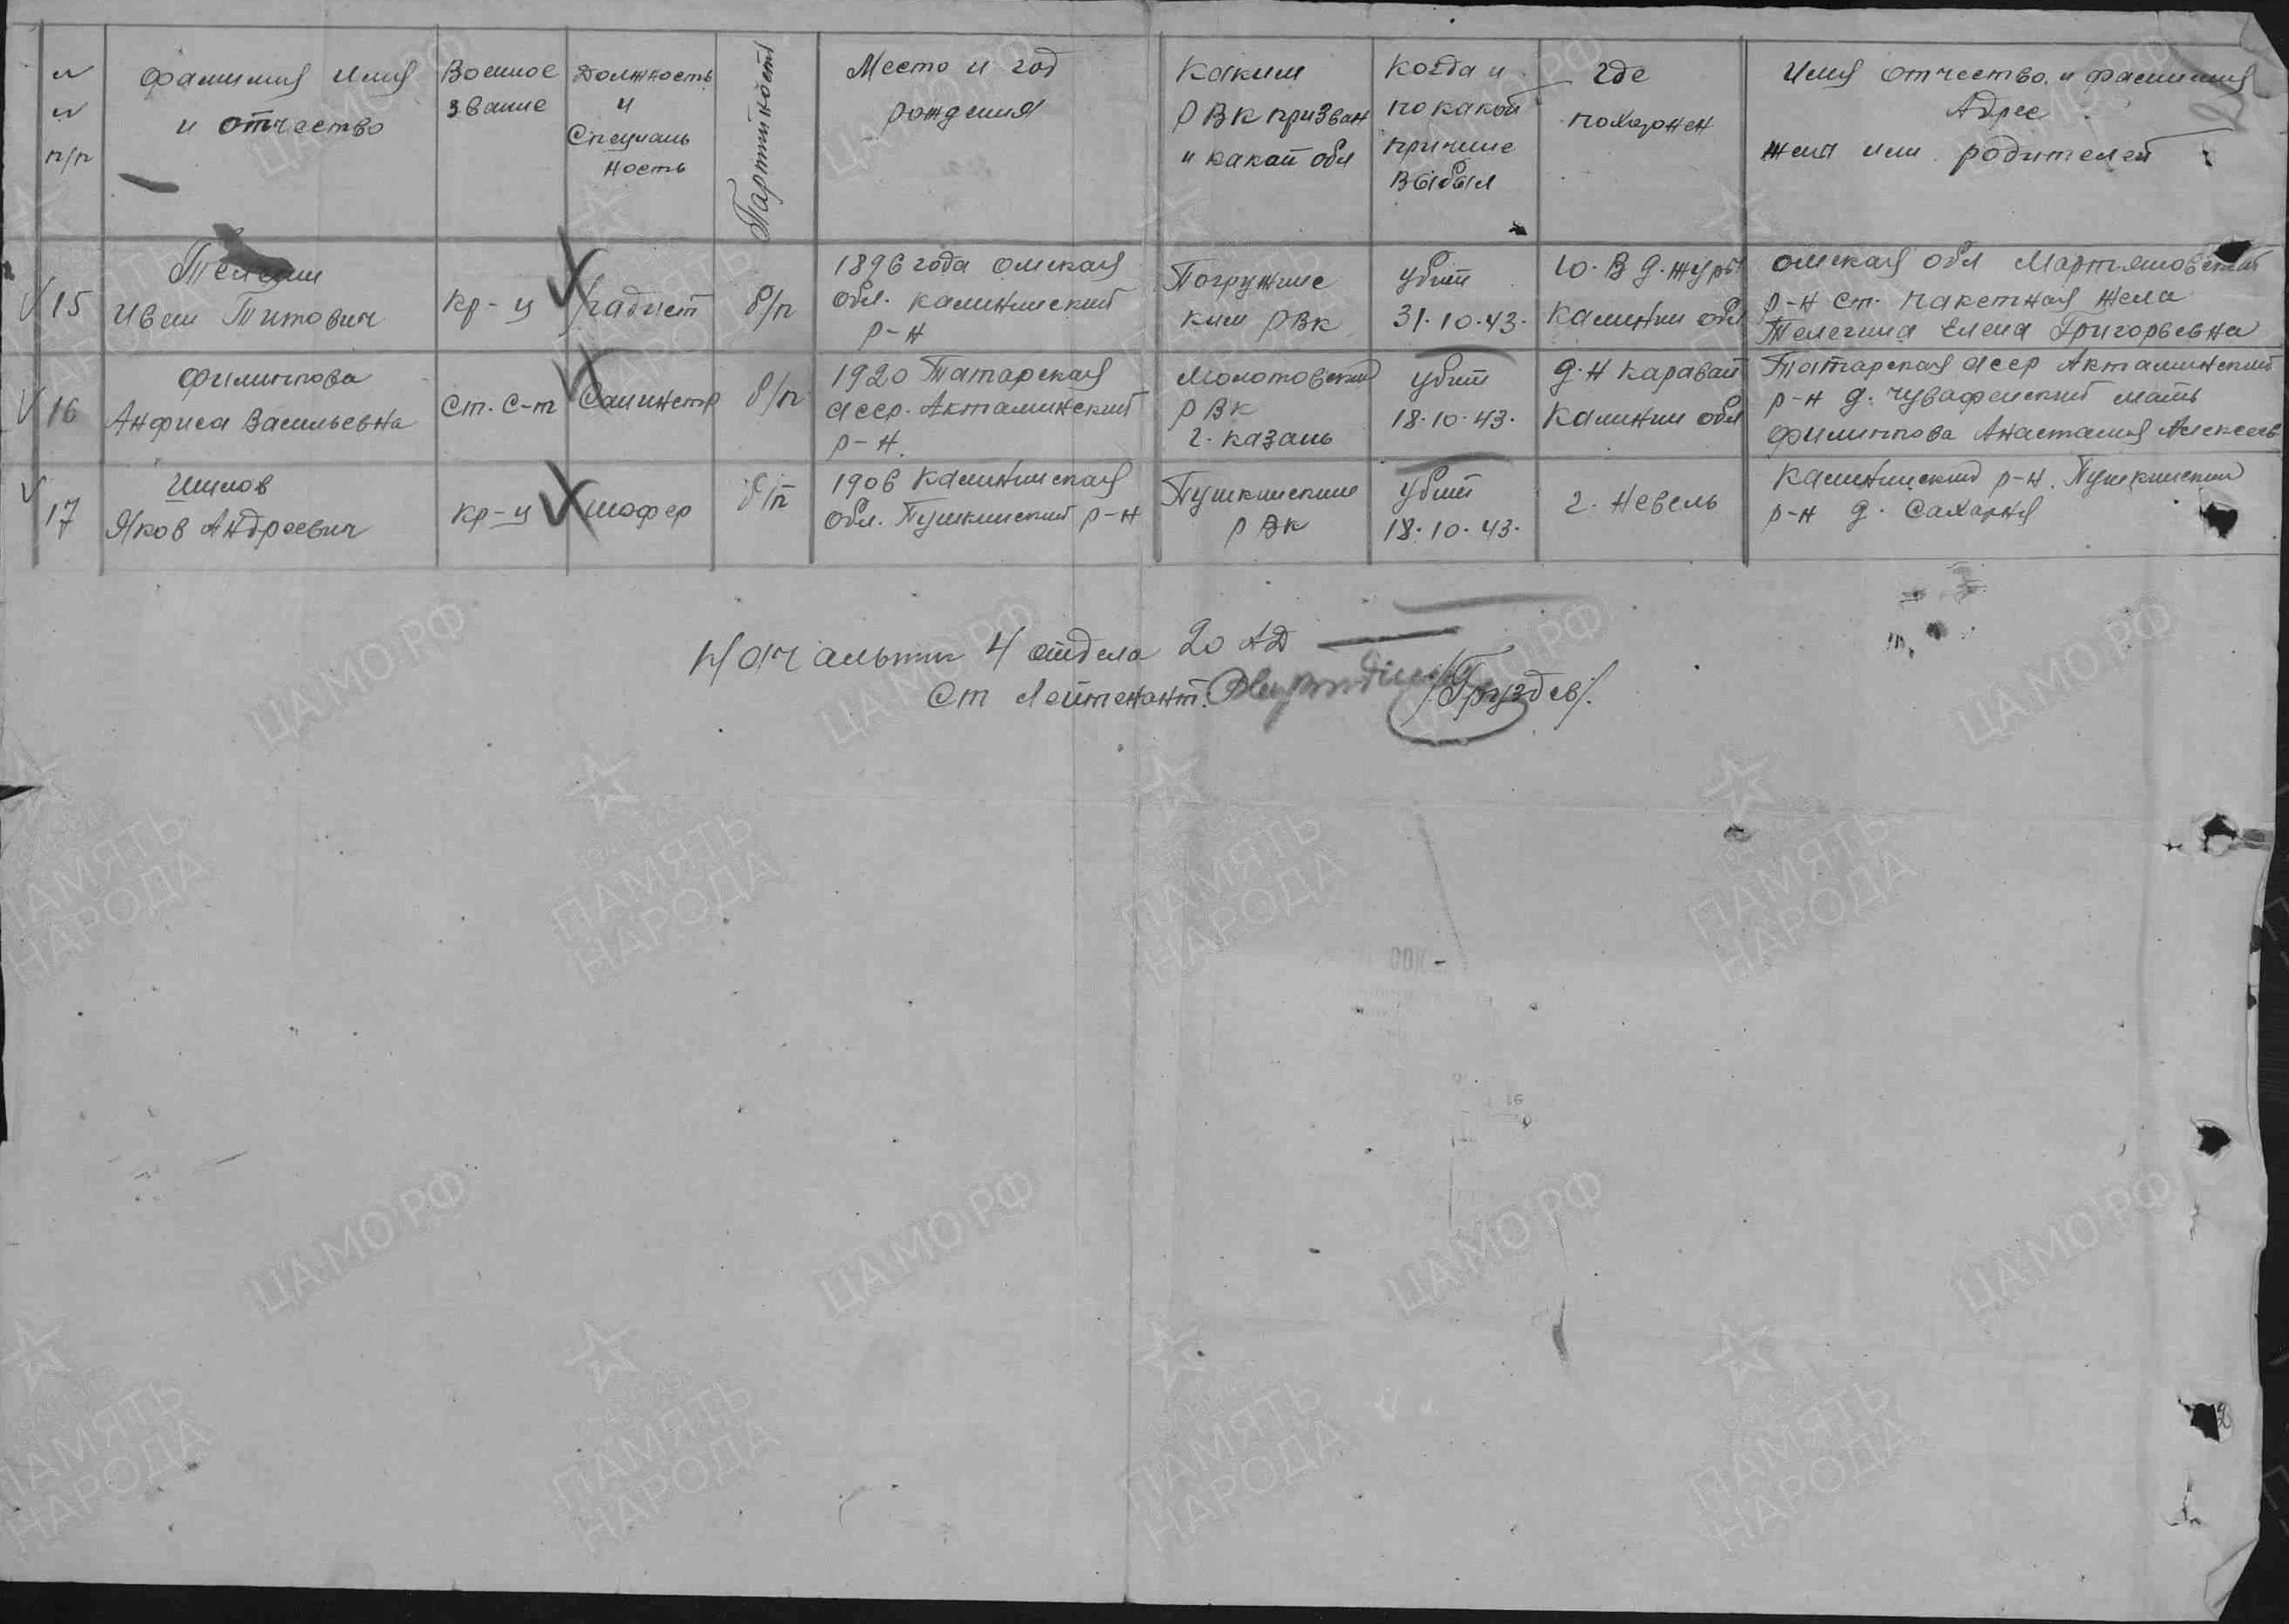 № № п/п
Фамилия Имя и отчество
Военное звание
Должность и Специальность
Партийность
Место и год рождения
Каким РВК призван и какой обл
Когда и по какой причине выбыл
где похоронен
Имя отчество и фамилия Адрес жены или родителей
15
Иван Титович
кр-ц
б/п
1896 года Омская
обл. Калининский
р-н
ким РВК
убит
31.10.43.
Ю.В д. Журы
Калинин обл
Омская обл Мартяновский
р-н ст. жена
Телегина Елена Григорьевна
16
Филиппова
Анфиса Васильевна
Ст. с-т
Санинстр
б/п
1920 Татарская
АССР. Акташинский
р-н.
Молотовский
РВК
г. Казань
убит
18.10.43.
д. Н Каравай
Калинин обл
Татарская АССР Акташинский
р-н д. мать
Филиппова Анастасия Алексеев
17
Яков Андреевич
кр-ц
шофер
б/п
1906 Калининская
обл. Пушкинский р-н
Пушкинским
РВК
убит
18.10.43.
г. Невель
Калининский р-н. Пушкинский
р-н д. Сахарня
Начальник 4 отдела 20 АД
Ст Лейтенант: /Груздев/.
ЦАМО.РФ
ПАМЯТЬ
НАРОДА